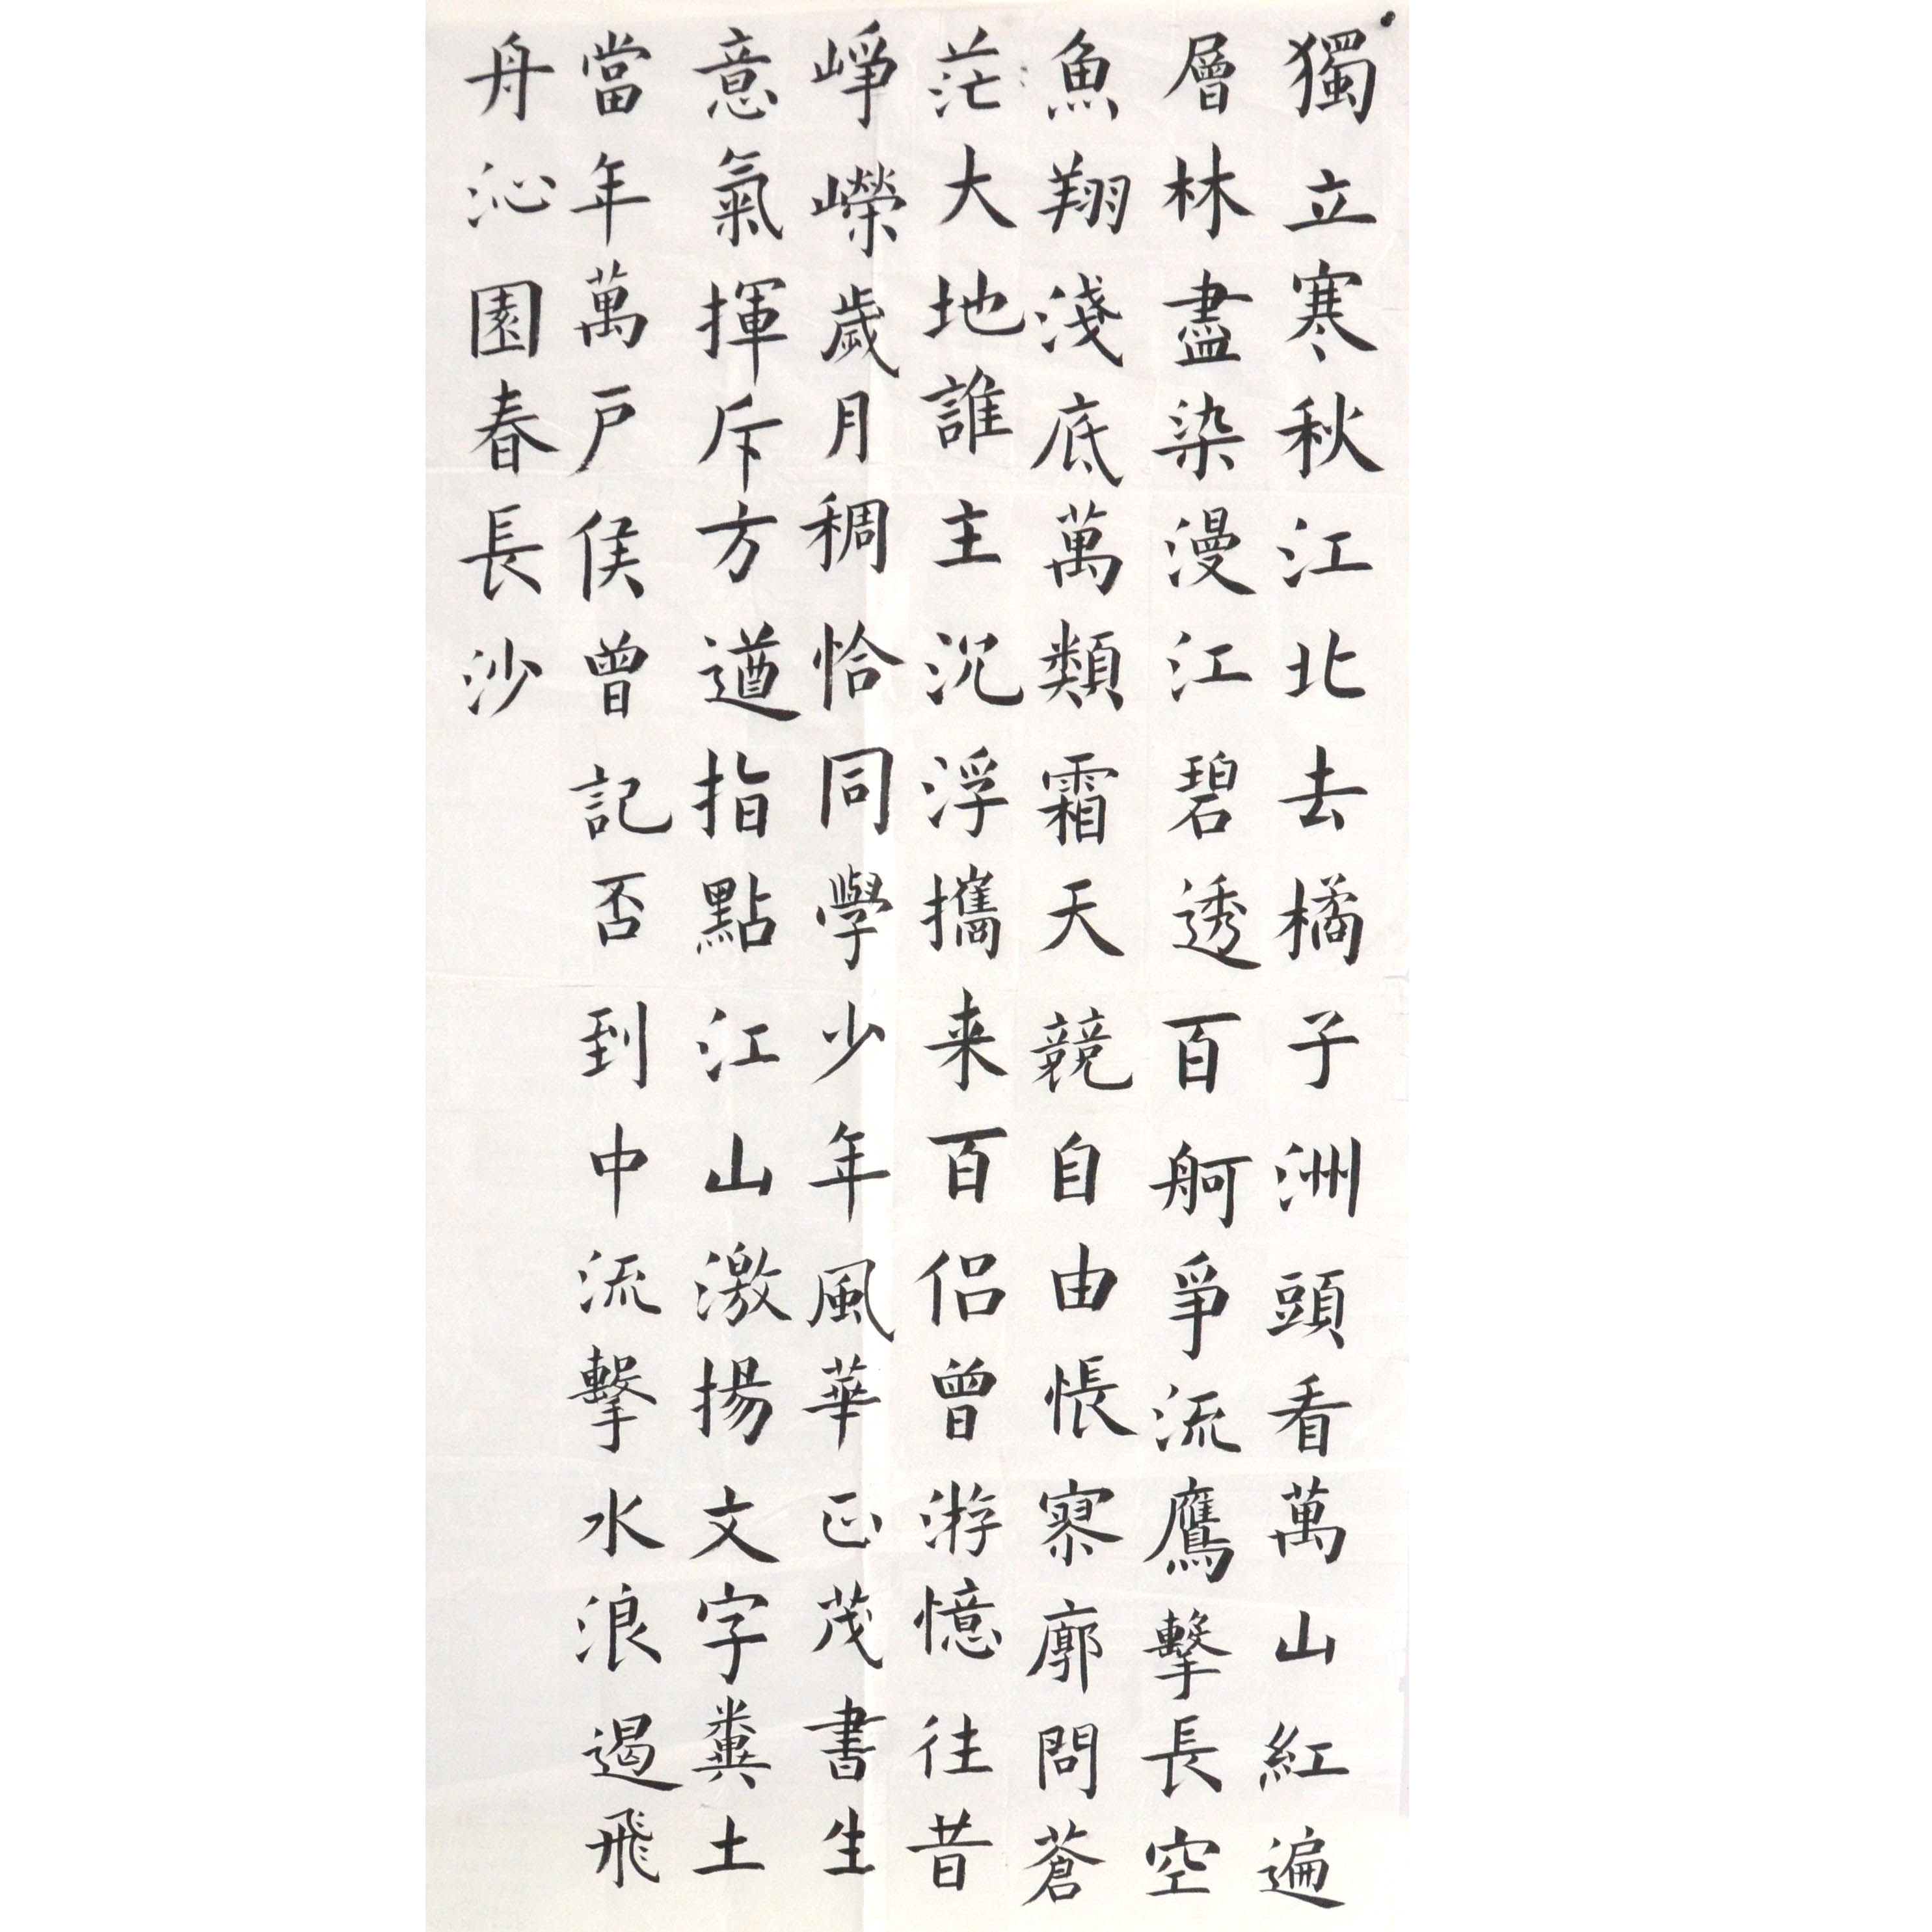 獨立寒秋江北去橘子洲頭看萬山紅遍
層林盡染漫江碧透百舸爭流鷹擊長空
魚翔淺底萬類霜天競自由悵寥廓問蒼
茫大地誰主沉浮攜来百侣曾游憶往昔
崢嶸歲月稠恰同學少年風華正茂書生
意氣揮斥方遒指點江山激揚文字糞土
當年萬戶侯曾記否到中流擊水浪遏飛
舟沁園春長沙